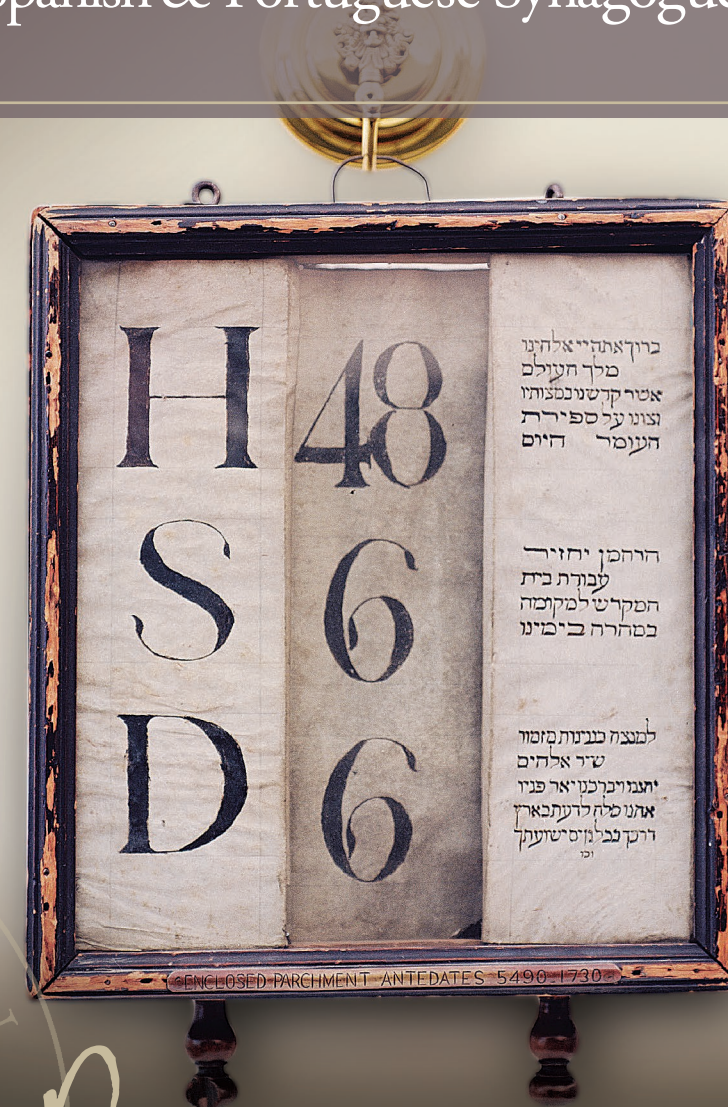 Spanish & Portuguese Synagogue
H 48
S 6
D 6
ברוך אתה יי אלהינו
מלך העולם
אשר קדשנו במצותיו
וצונו על ספירת
העומר היום
הרחמן יחזיר
עבודת בית
המקדש למקומה
במהרה בימינו
למנצח בנגינות מזמור
שיר אלהים
יחננו ויברכנו יאר פניו
אתנו סלה לדעת בארץ
דרכך בכל גוים ישועתך
וכו
ENCLOSED PARCHMENT ANTEDATES 5490-1730